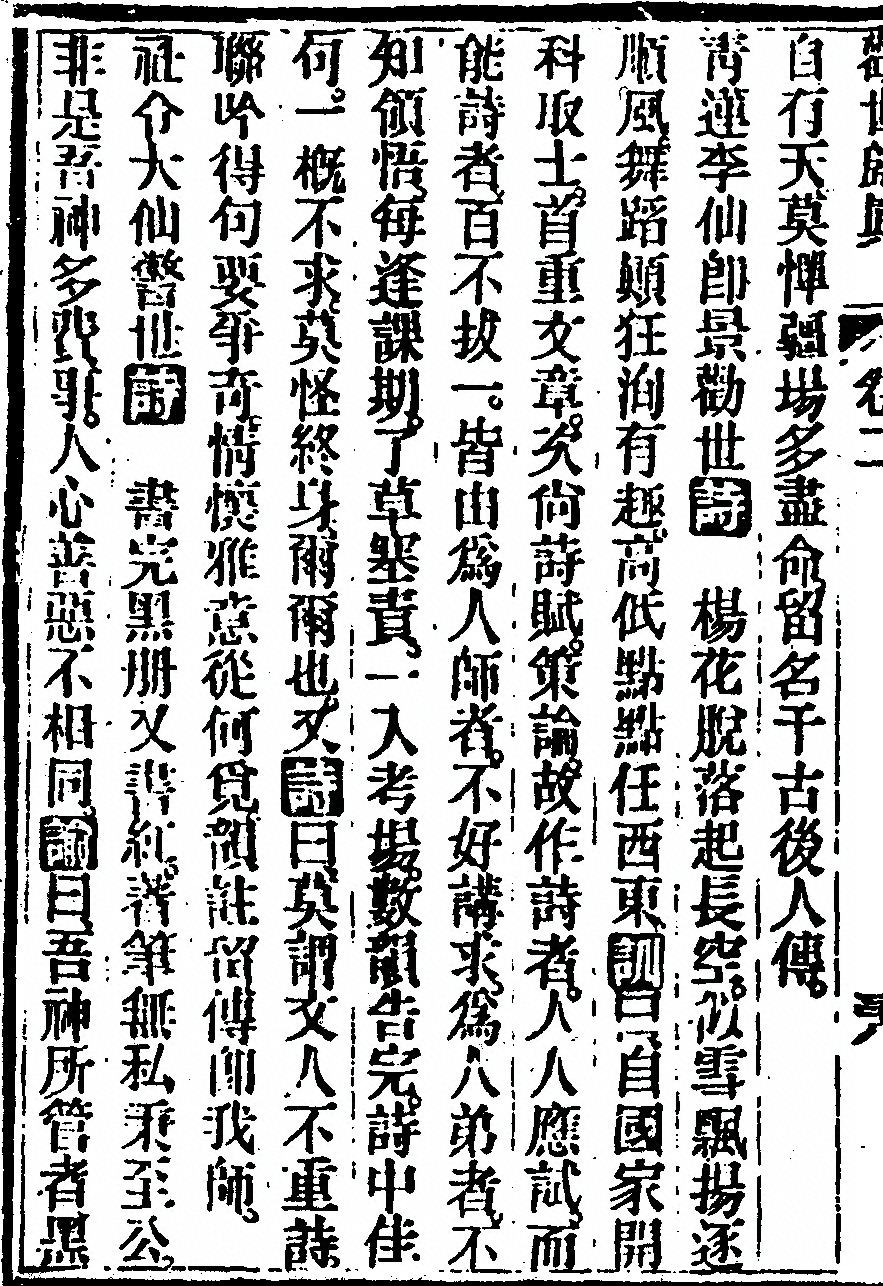 卷二
自有天莫憚疆場多盡命留名千古後人傳。
靑蓮李仙卽景勸世詩　楊花脫落起長空。似雪飄揚逐
順風、舞蹈顚狂洵有趣、高低點點任西東、訓曰、自國家開
科取士。首重文章。次尙詩賦。策論。故作詩者。人人應試、而
能詩者、百不拔一。皆由爲人師者。不好講求、爲人弟者、不
知領悟、每逢課期。了草塞責、一入考場。數韻告完。詩中佳
句。一槪不求、莫怪終身爾爾也、又詩曰、莫謂文人不重詩。
聯吟得句要爭奇。情懷雅意從何覓、韻註留傳卽我師。
社令大仙警世詩　書完黑册又書紅。著筆無私秉至公。
非是吾神多費事。人心善惡不相同。諭曰、吾神所管者、黑